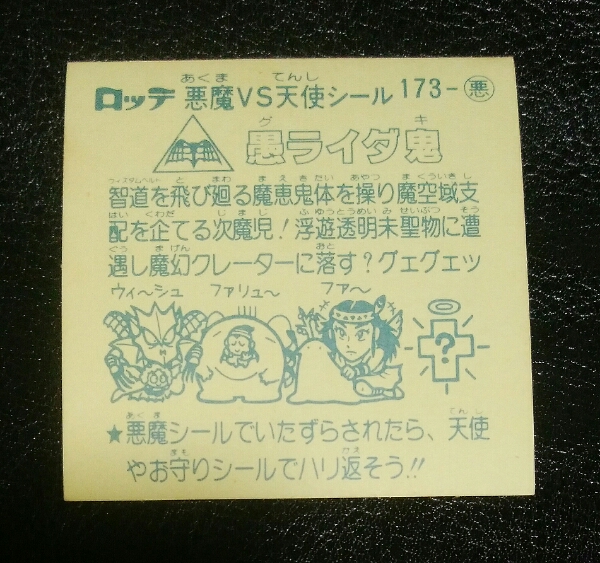 あくま てんし
ロッテ 悪魔VS天使シール 173-悪
グ キ
愚ライダ鬼
ウィズダムベルト と まわ まえきたい あやつ まくういきし
智道を飛び廻る魔恵鬼体を操り魔空域支
はい くわだ じまじ ふゆうとうめいみせいぶつ そう
配を企てる次魔児!浮遊透明未聖物に遭
ぐう まげん おと
遇し魔幻クレーターに落す?グェグエッ
ウィ〜シュ ファリュ〜 ファ〜
?
あくま てんし
★悪魔シールでいたずらされたら、天使
まも かえ
やお守りシールでハリ返そう!!